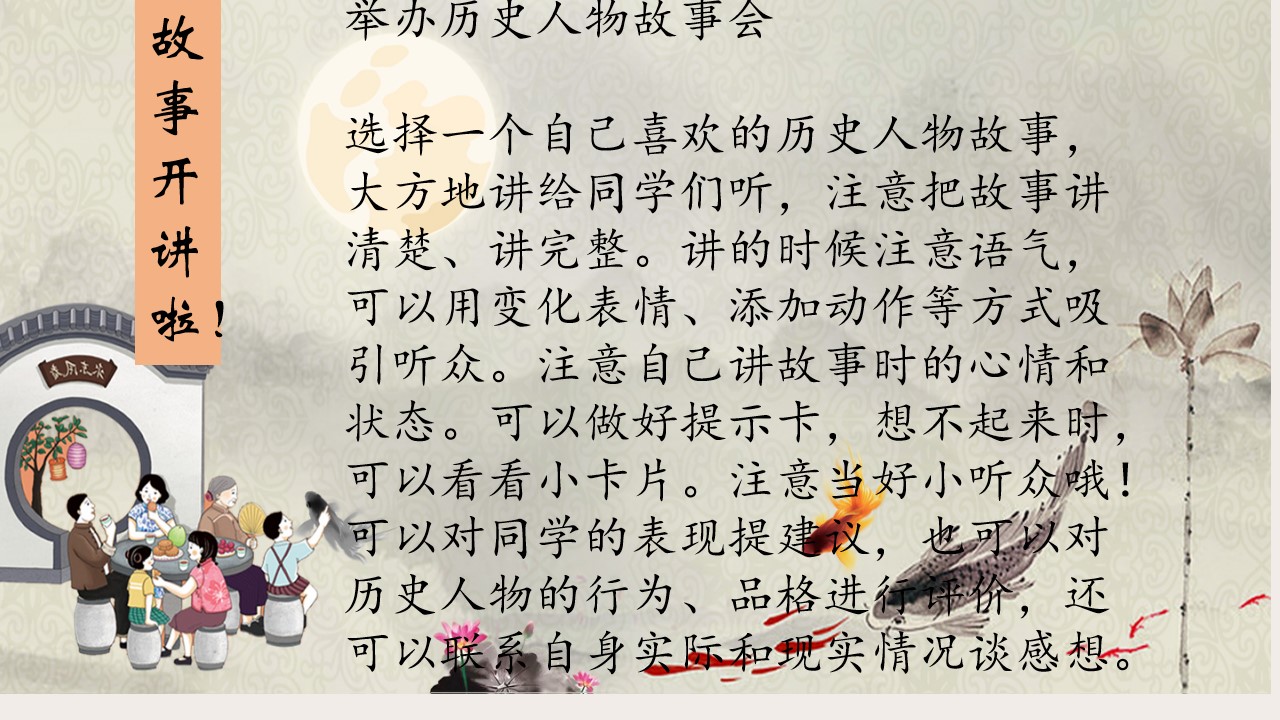 故事开讲啦！
举办历史人物故事会
选择一个自己喜欢的历史人物故事，
大方地讲给同学们听，注意把故事讲
清楚、讲完整。讲的时候注意语气，
可以用变化表情、添加动作等方式吸
引听众。注意自己讲故事时的心情和
状态。可以做好提示卡，想不起来时，
可以看看小卡片。注意当好小听众哦！
可以对同学的表现提建议，也可以对
历史人物的行为、品格进行评价，还
可以联系自身实际和现实情况谈感想。